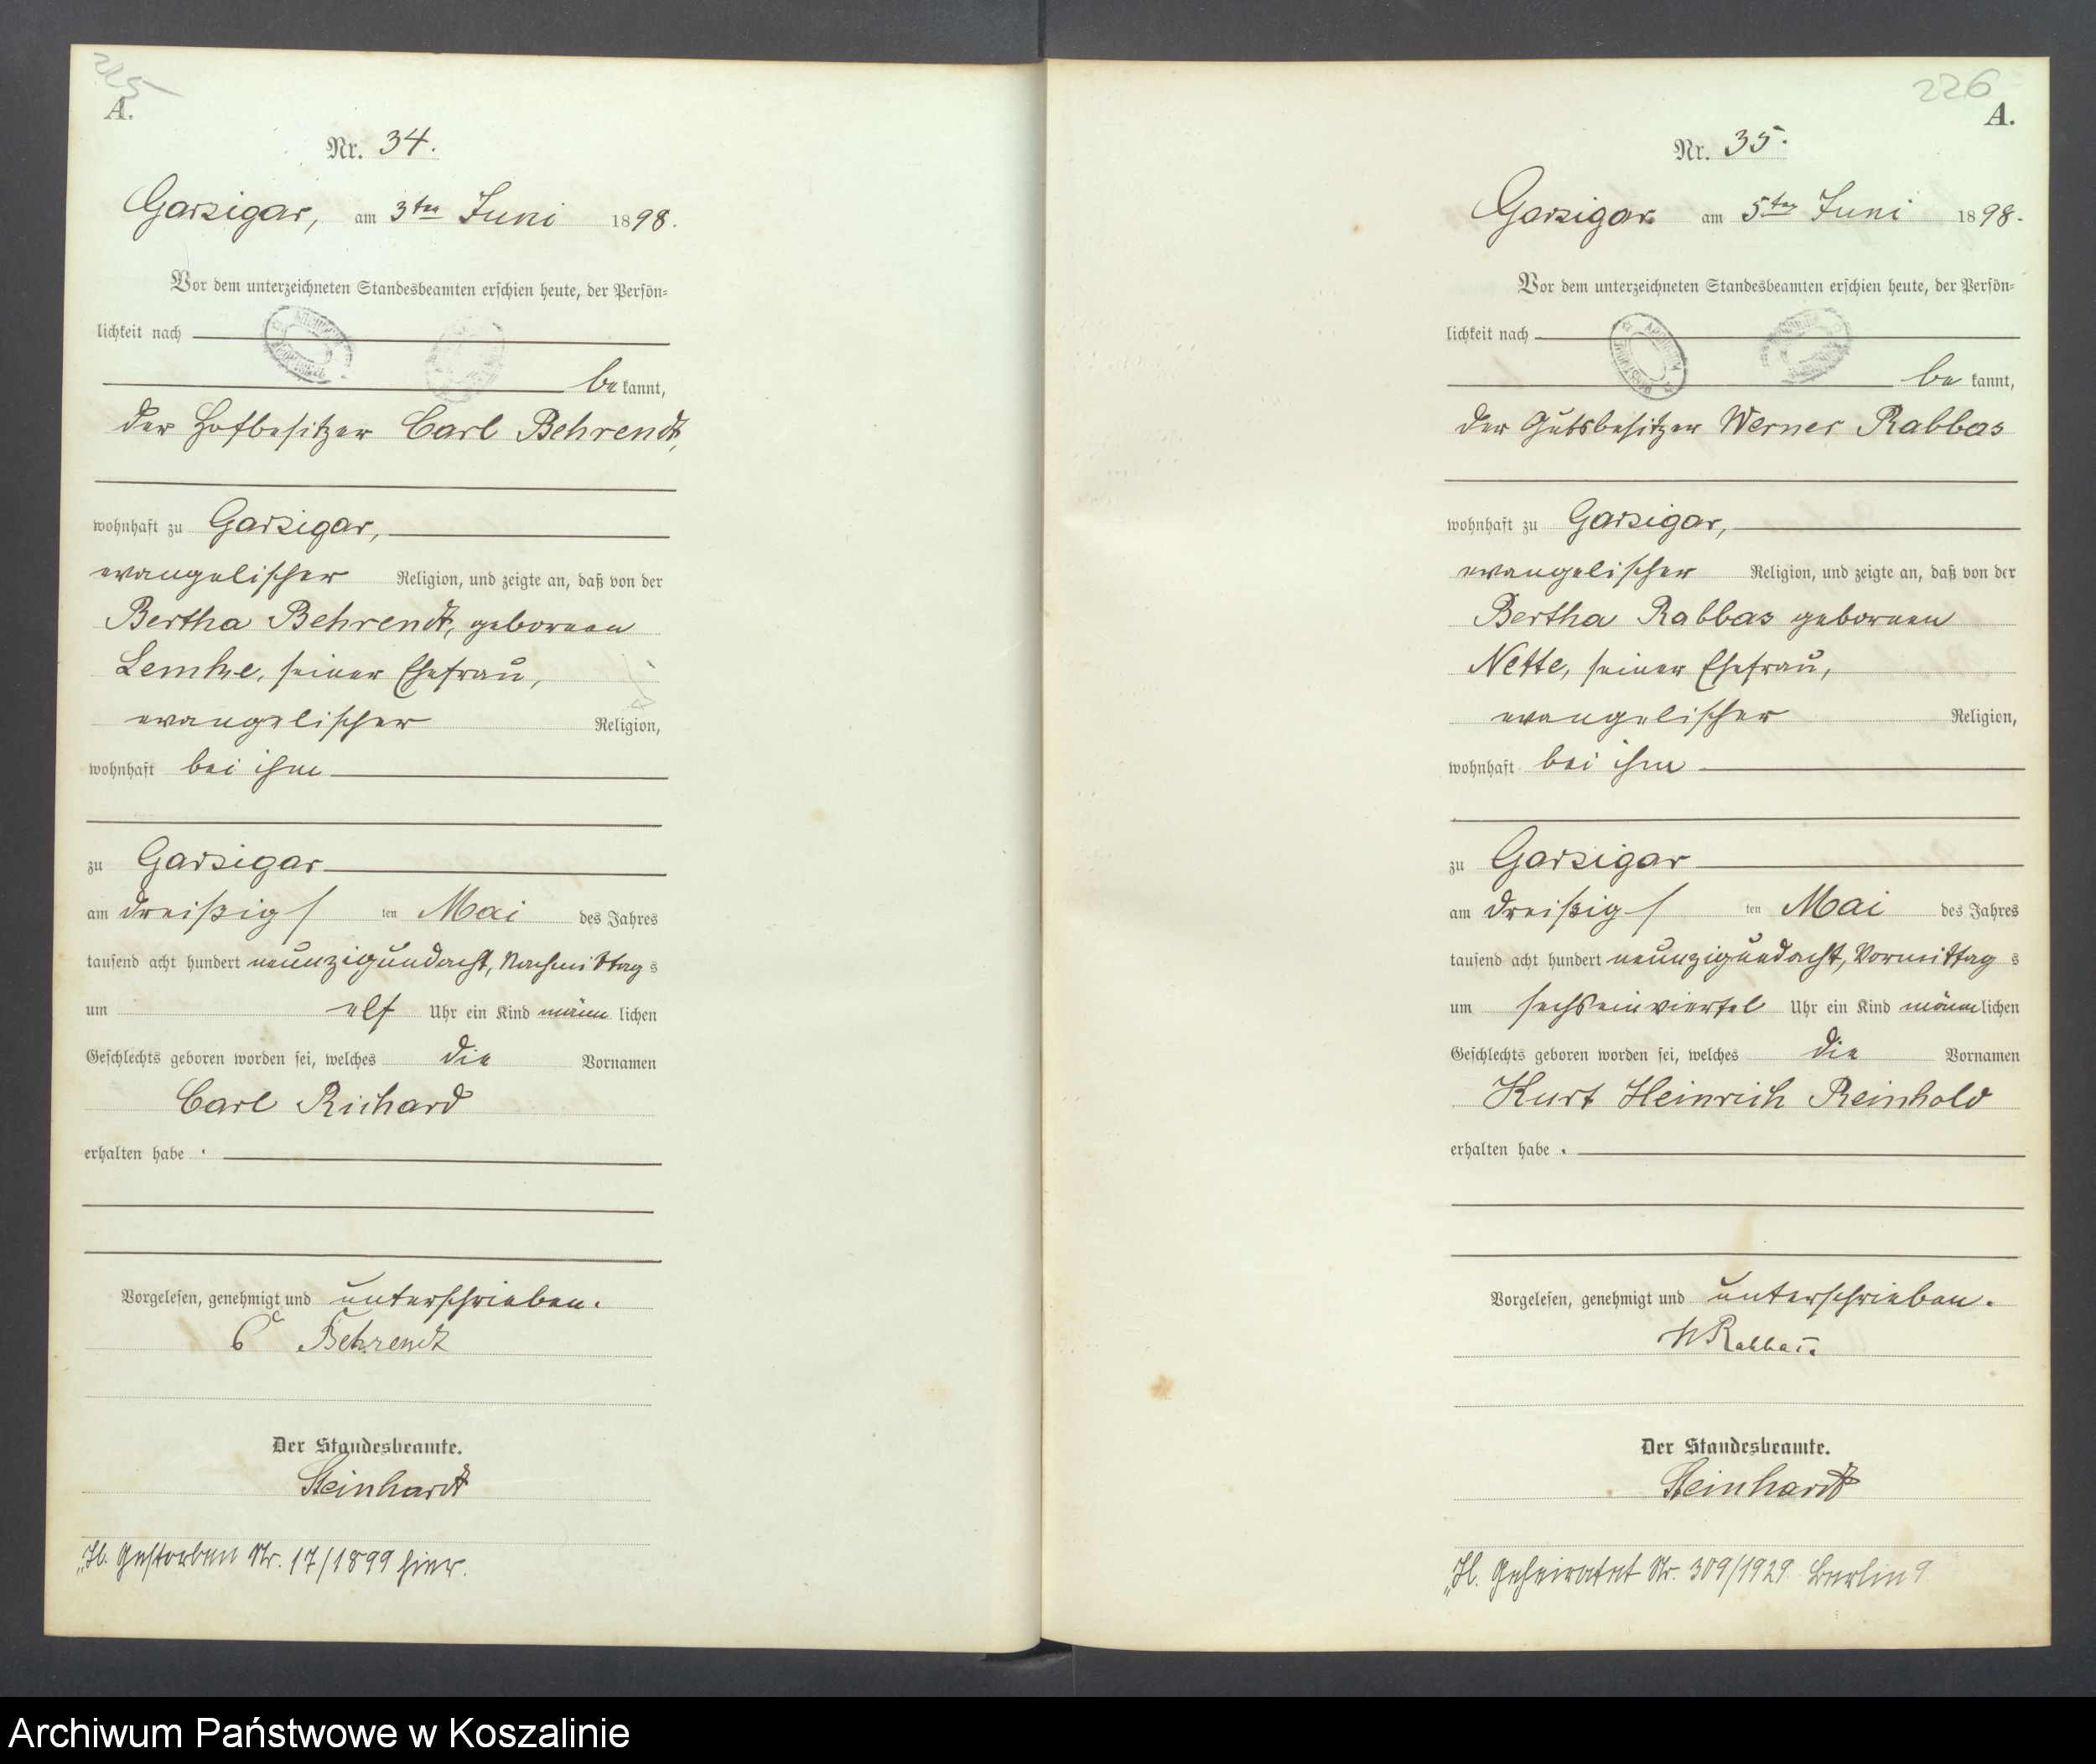 225
A.
Nr. 34.
Garzigar, am 3ten Juni 1898.
Vor dem unterzeichneten Standesbeamten erschien heute, der Persön=
lichkeit nach
be kannt,
der Hofbesitzer Carl Behrendt,
wohnhaft zu Garzigar,
evangelischer Religion, und zeigte an, daß von der
Bertha Behrendt, gebornen
Lemke, seiner Ehefrau,
evangelischer Religion,
wohnhaft bei ihm
zu Garzigar
am dreißigs ten Mai des Jahres
tausend acht hundert neunzigundacht, Nachmittag s
um elf Uhr ein Kind männ lichen
Geschlechts geboren worden sei, welches die Vornamen
Carl Richard
erhalten habe .
Vorgelesen, genehmigt und unterschrieben.
C Behrendt
Der Standesbeamte.
Steinhardt
Gestorben Nr. 17/1899 hier.
226
A.
Nr. 35.
Garzigar am 5ten Juni 1898.
Vor dem unterzeichneten Standesbeamten erschien heute, der Persön=
lichkeit nach
be kannt,
der Gutsbesitzer Werner Rabbas
wohnhaft zu Garzigar,
evangelischer Religion, und zeigte an, daß von der
Bertha Rabbas gebornen
Nette, seiner Ehefrau,
evangelischer Religion,
wohnhaft bei ihm
zu Garzigar
am dreißigs ten Mai des Jahres
tausend acht hundert neunzigundacht, Vormittag s
um sechseinviertel Uhr ein Kind männ lichen
Geschlechts geboren worden sei, welches die Vornamen
Kurt Heinrich Reinhold
erhalten habe .
Vorgelesen, genehmigt und unterschrieben.
W Rabbas.
Der Standesbeamte.
Steinhardt
Geheiratet Nr. 309/1929 Berlin 9
Archiwum Państwowe w Koszalinie